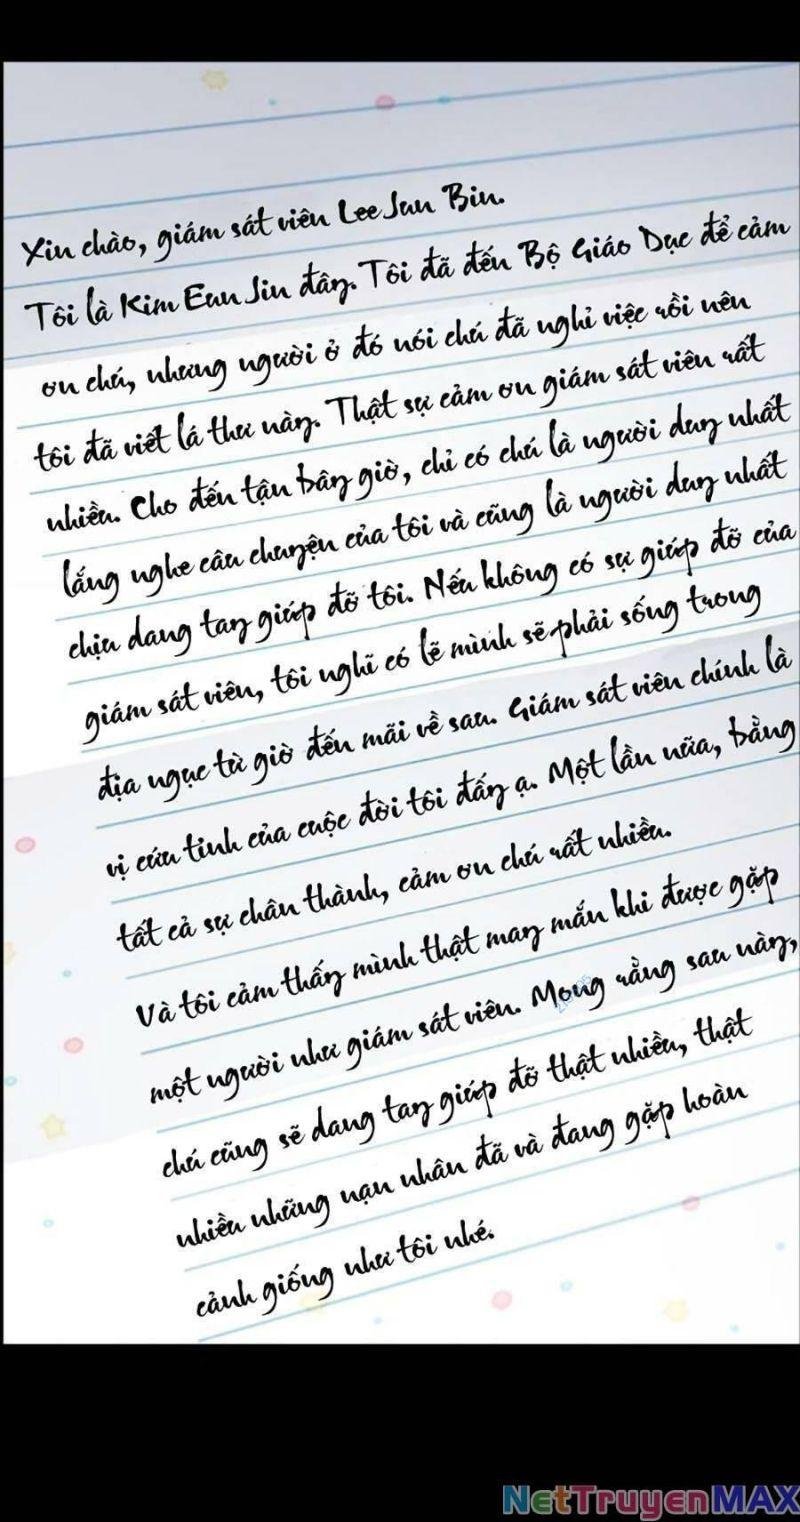 Xin chào, giám sát viên Lee Jun Bin.
Tôi là Kim Eun Jin đây. Tôi đã đến Bộ Giáo Dục để cảm
ơn chú, nhưng người ở đó nói chú đã nghỉ việc rồi nên
tôi đã viết lá thư này. Thật sự cảm ơn giám sát viên rất
nhiều. Cho đến tận bây giờ, chỉ có chú là người duy nhất
lắng nghe câu chuyện của tôi và cũng là người duy nhất
chịu dang tay giúp đỡ tôi. Nếu không có sự giúp đỡ của
giám sát viên, tôi nghĩ có lẽ mình sẽ phải sống trong
địa ngục từ giờ đến mãi về sau. Giám sát viên chính là
vị cứu tinh của cuộc đời tôi đấy ạ. Một lần nữa, bằng
tất cả sự chân thành, cảm ơn chú rất nhiều.
Và tôi cảm thấy mình thật may mắn khi được gặp
một người như giám sát viên. Mong rằng sau này,
chú cũng sẽ dang tay giúp đỡ thật nhiều, thật
nhiều những nạn nhân đã và đang gặp hoàn
cảnh giống như tôi nhé.
NetTruyenMAX